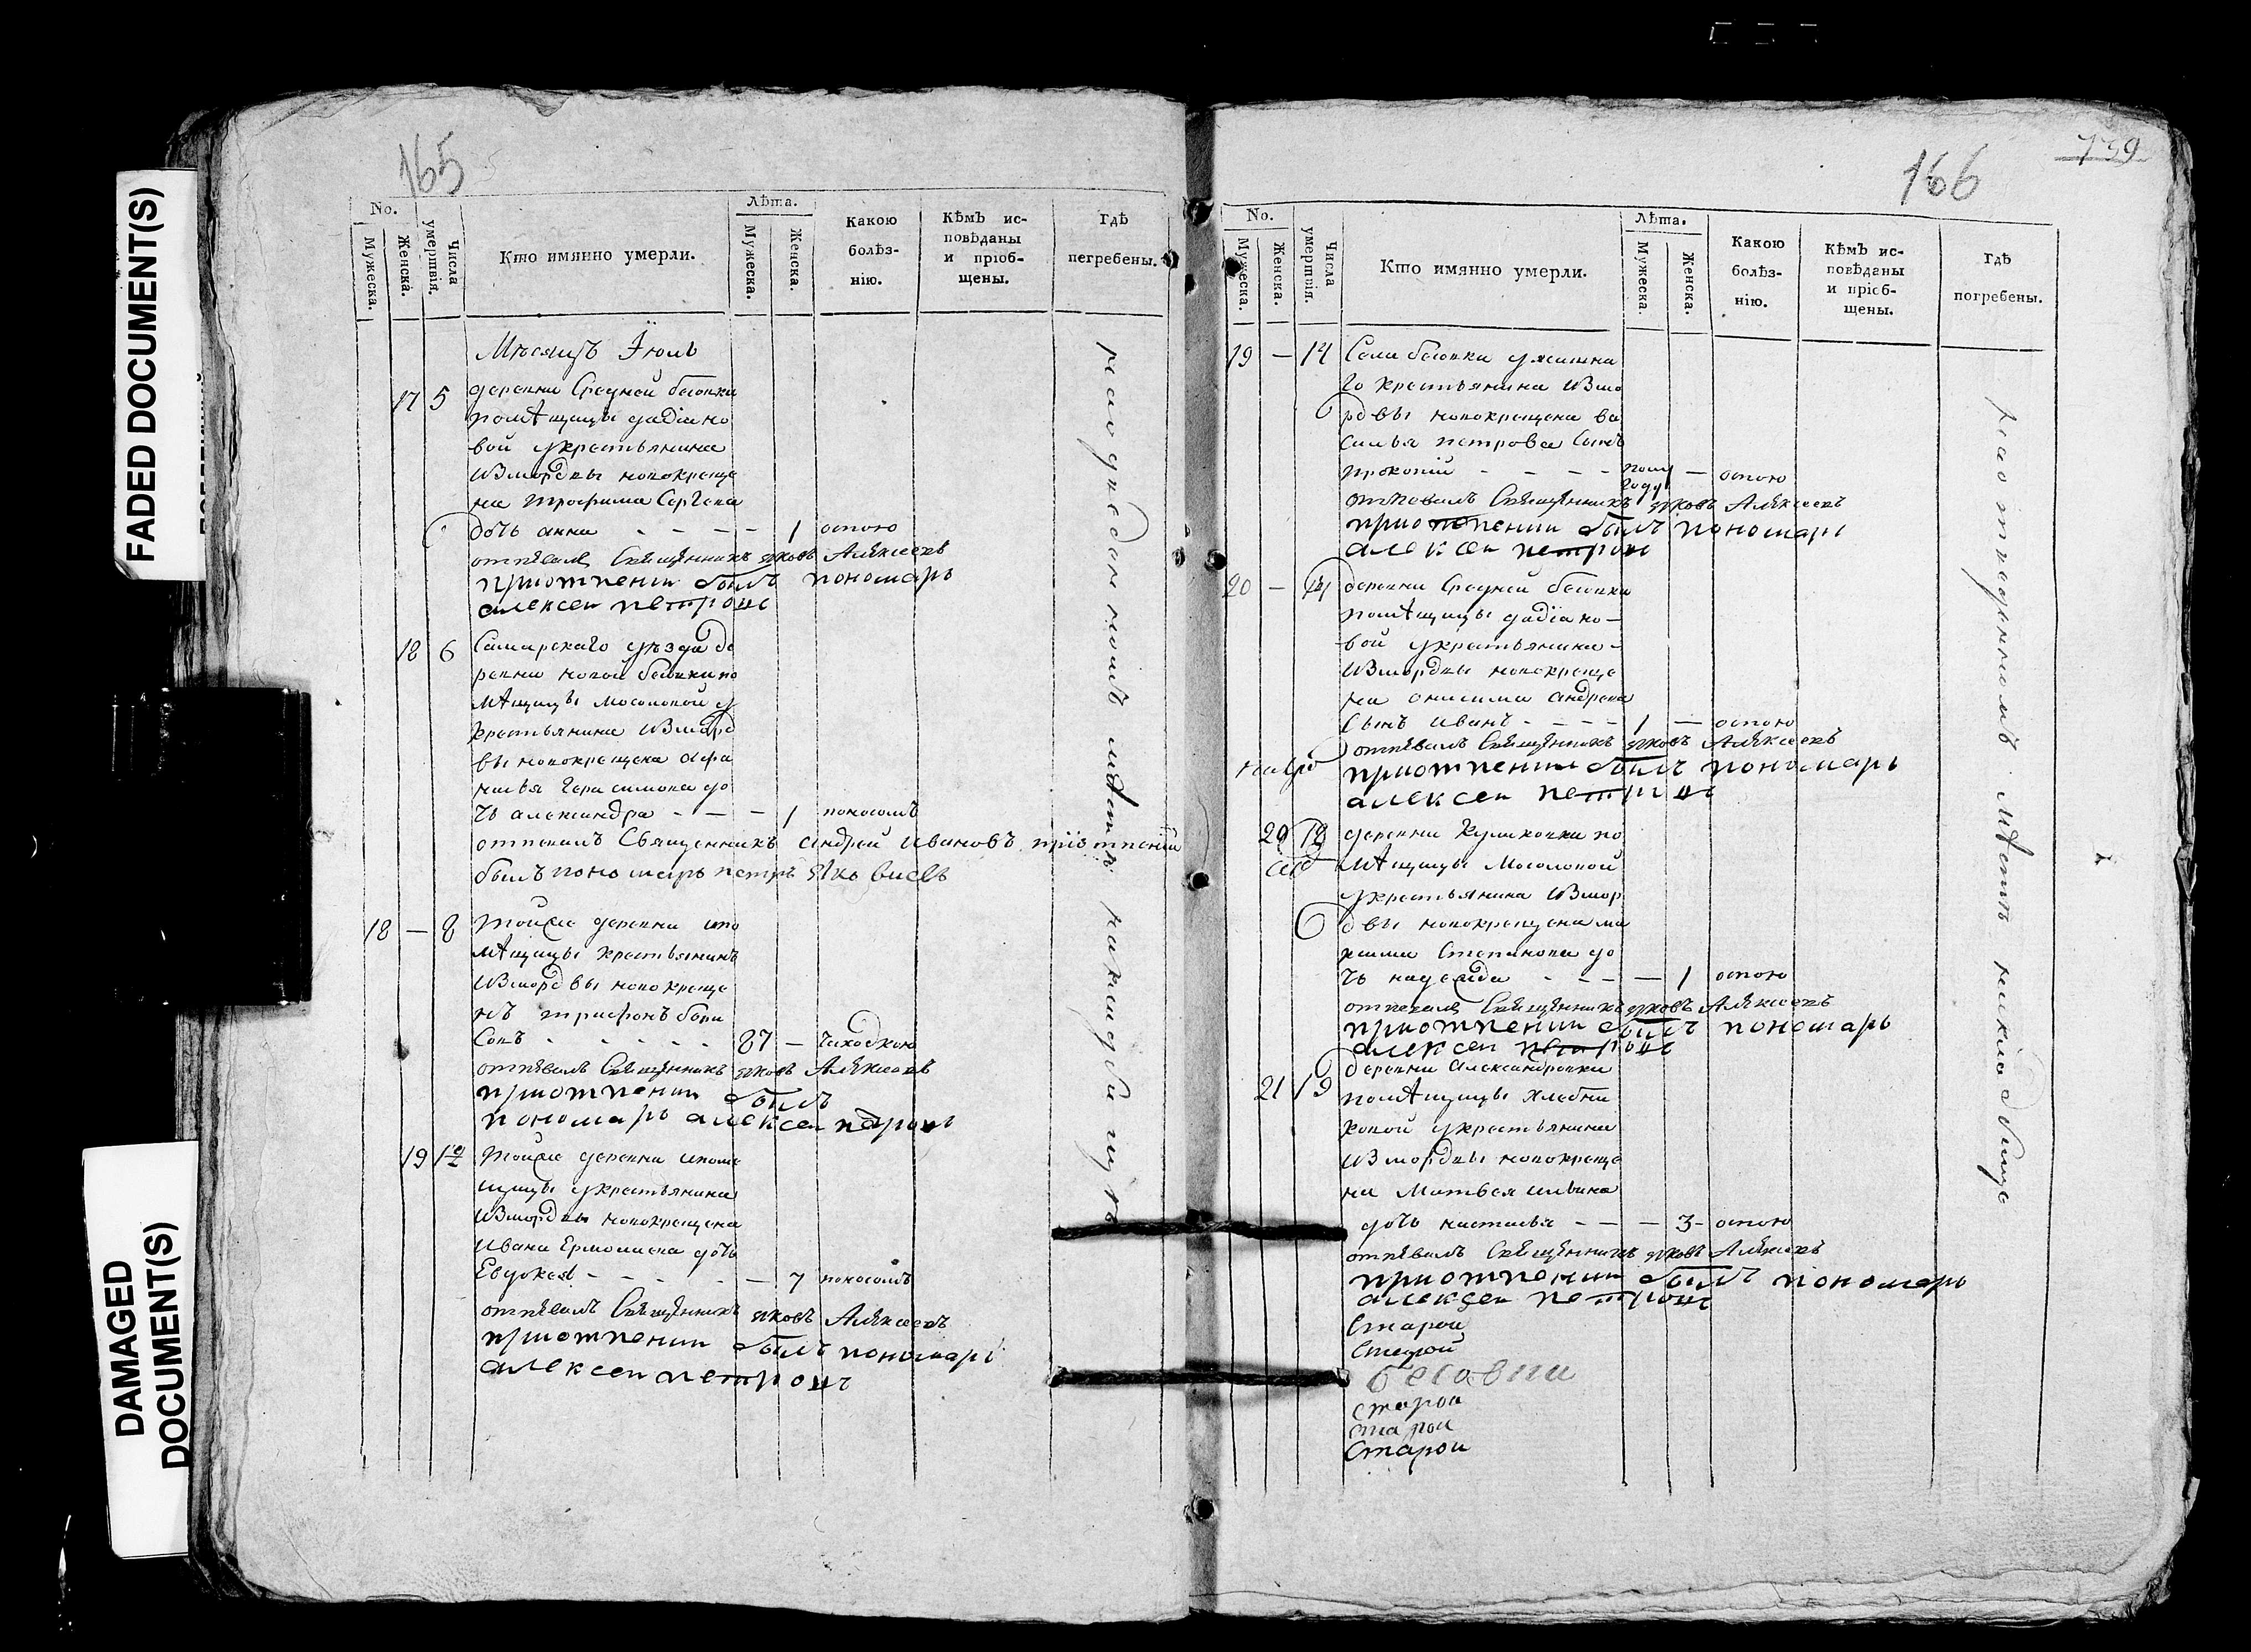 FADED DOCUMENT(S)
DAMAGED
DOCUMENT(S)
165
No.
Мужеска.
Женска.
Числа
умертвія.
Кто имянно умерли.
Лѣта.
Мужеска.
Женска.
Какою
болѣз-
нію.
Кѣмъ ис-
повѣданы
и пріоб-
щены.
Гдѣ
погребены.
Мѣсяцъ Іюль
17 5 деревни Средней бесовки
помѣщицы дадіано
вой укрестьянина
измордвы новокреще
на трофима Сергеева
дочь анна - - - - 1 оспою
отпѣвалъ Священникъ яковъ Алѣксеевъ
приотпении былъ пономарь
алексеи петровъ
18 6 Самарскаго уѣзда де
ревни новой бесовки по
мѣщицы мосоловой у
крестьянина измард
вы новокрещена афа
насья Герасимова до
чь александра - - - 1 поносомъ
отпевалъ Священникъ андрей ивановъ приотпении
былъ пономарь петръ
18 - 8 тойже деревни ипо
мѣщицы крестьянинъ
измордвы новокреще
нъ трифонъ бори
совъ - - - - - 87 - чихоткою
отпѣвалъ Священникъ яковъ Алѣксеевъ
приотпении былъ
пономарь алексеи петровъ
19 тойже деревни ипоме
щицы укрестьянина
измордвы новокрещена
ивана Ермолаева дочь
Евдокея - - - - - 7 поносомъ
отпѣвалъ Священникъ яковъ Алѣксеевъ
приотпении былъ пономарь
алексеи петровъ
мѣсте
166
739
No.
Мужеска.
Женска.
Числа
умертвія.
Кто имянно умерли.
Лѣта.
Мужеска.
Женска.
Какою
болѣз-
нію.
Кѣмъ ис-
повѣданы
и пріоб-
щены.
Гдѣ
погребены.
19 - 14 Села бесовки
го крестьянина измо
рдвы новокрещена ва
силья петрова сынъ
прокопий - - - - полу - оспою
году
отпевалъ Священникъ яковъ Алѣксеевъ
приотпении былъ пономарь
алексеи петровъ
20 - деревни Средней бесовки
помѣщицы дадіано-
вой укрестьянина -
измордвы новокреще
на онисима андреева
сынъ иванъ - - - - 1 - оспою
отпѣвалъ Священникъ яковъ Алѣксеевъ
приотпении былъ пономарь
алексеи петровъ
20 18 деревни Куликовки по
мѣщицы Мосоловой
укрестьянина измор
двы новокрещена ма
ксима Степанова до
чь надежда - - - - 1 оспою
отпевалъ Священникъ яковъ Алѣксеевъ
приотпении былъ пономарь
алексеи петровъ
21 19 деревни Александровки
помѣщицы хлебни
ковой укрестьянина
измордвы новокреще
на Матвея ильина
дочь настасья - - - 3 - оспою
отпѣвалъ Священникъ яковъ Алѣксеевъ
приотпении былъ пономарь
алексеи петровъ
Старой
Старой
бесовки
старои
старои
Старои
мѣсте на кладбище